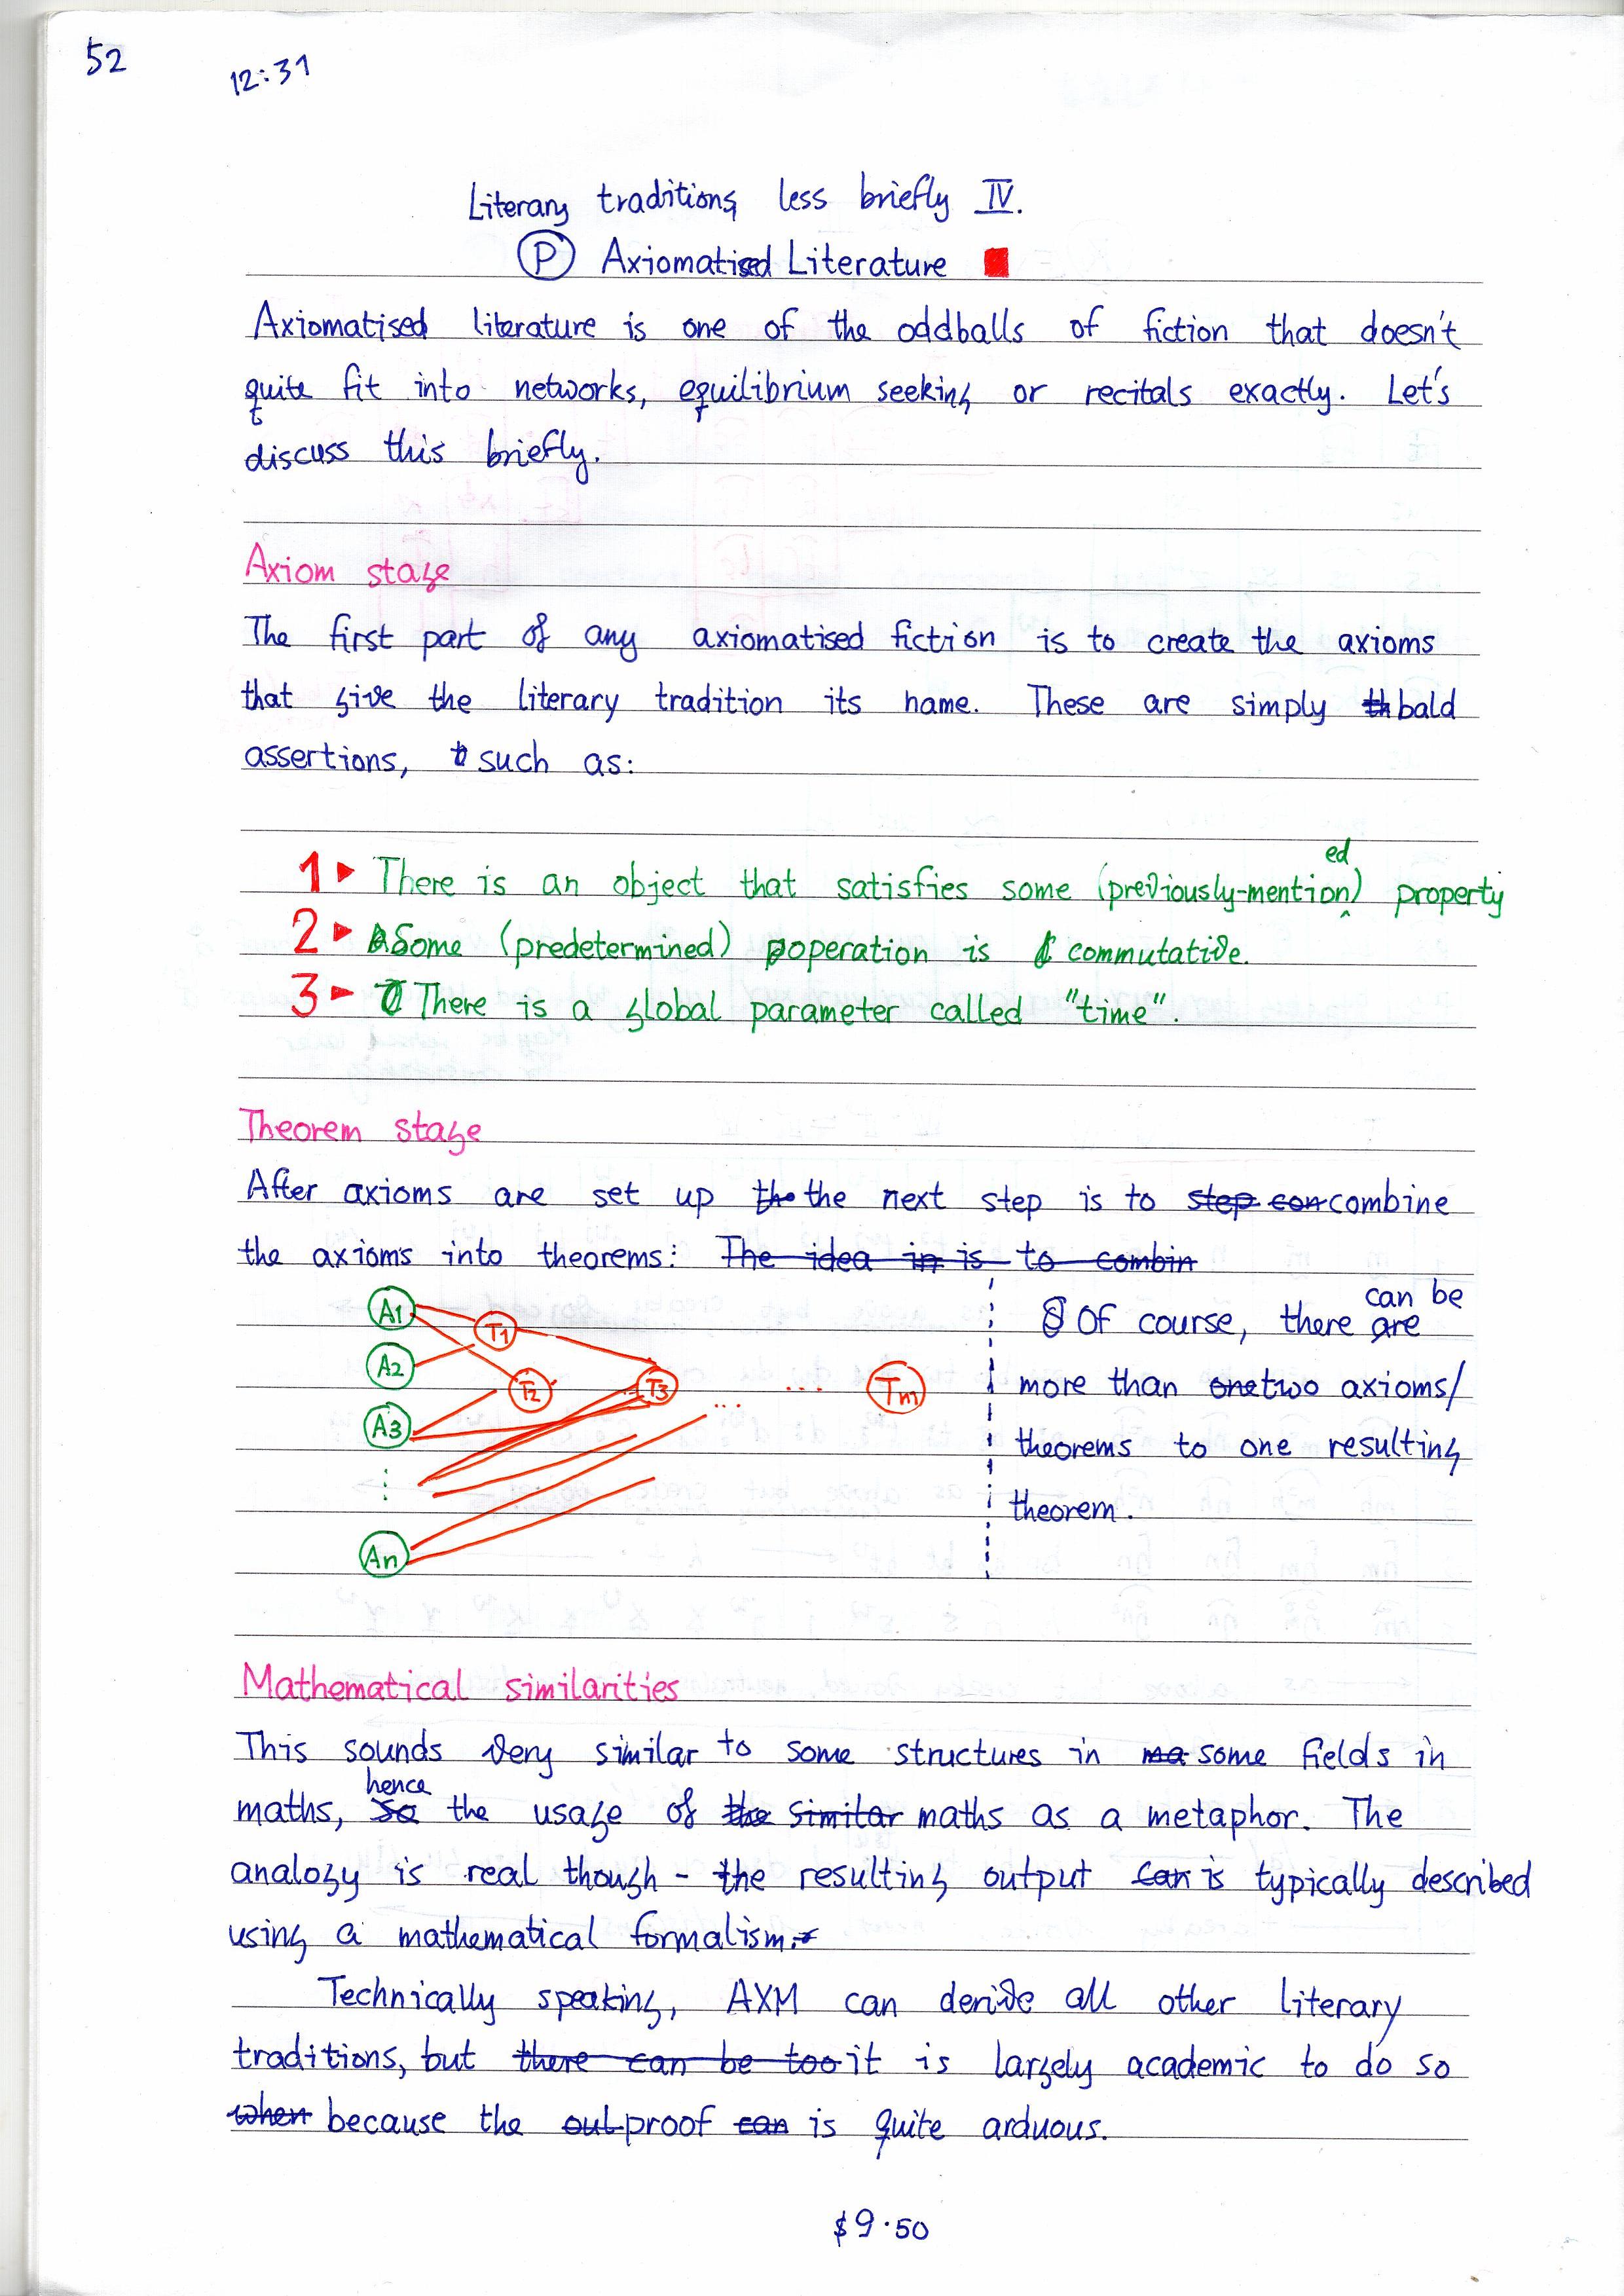 52
12:31
Literary traditions, less briefly IV.
P Axiomatised Literature
Axiomatised literature is one of the oddballs of fiction that doesn't
quite fit into networks, equilibrium seeking or recitals exactly. Let's
discuss this briefly.
Axiom stage
The first part of any axiomatised fiction is to create the axioms
that give the literary tradition its name. These are simply th bald
assertions, t such as:
1 ► There is an object that satisfies some (previously-mentioned) property
2 ► Some (predetermined) operation is commutative.
3 ► There is a global parameter called "time".
Theorem stage
After axioms are set up the the next step is to step con combine
the axioms into theorems: The idea in is to combin
A1
T1
A2
T2
T3
... Tm
A3
...
⋮
An
Of course, there are can be
more than one two axioms/
theorems to one resulting
theorem.
Mathematical similarities
This sounds very similar to some structures in ma some fields in
maths, so hence the usage of the similar maths as a metaphor. The
analogy is real though - the resulting output can is typically described
using a mathematical formalism.
Technically speaking, AXM can derive all other literary
traditions, but there can be too it is largely academic to do so
when because the out proof can is quite arduous.
$9.50